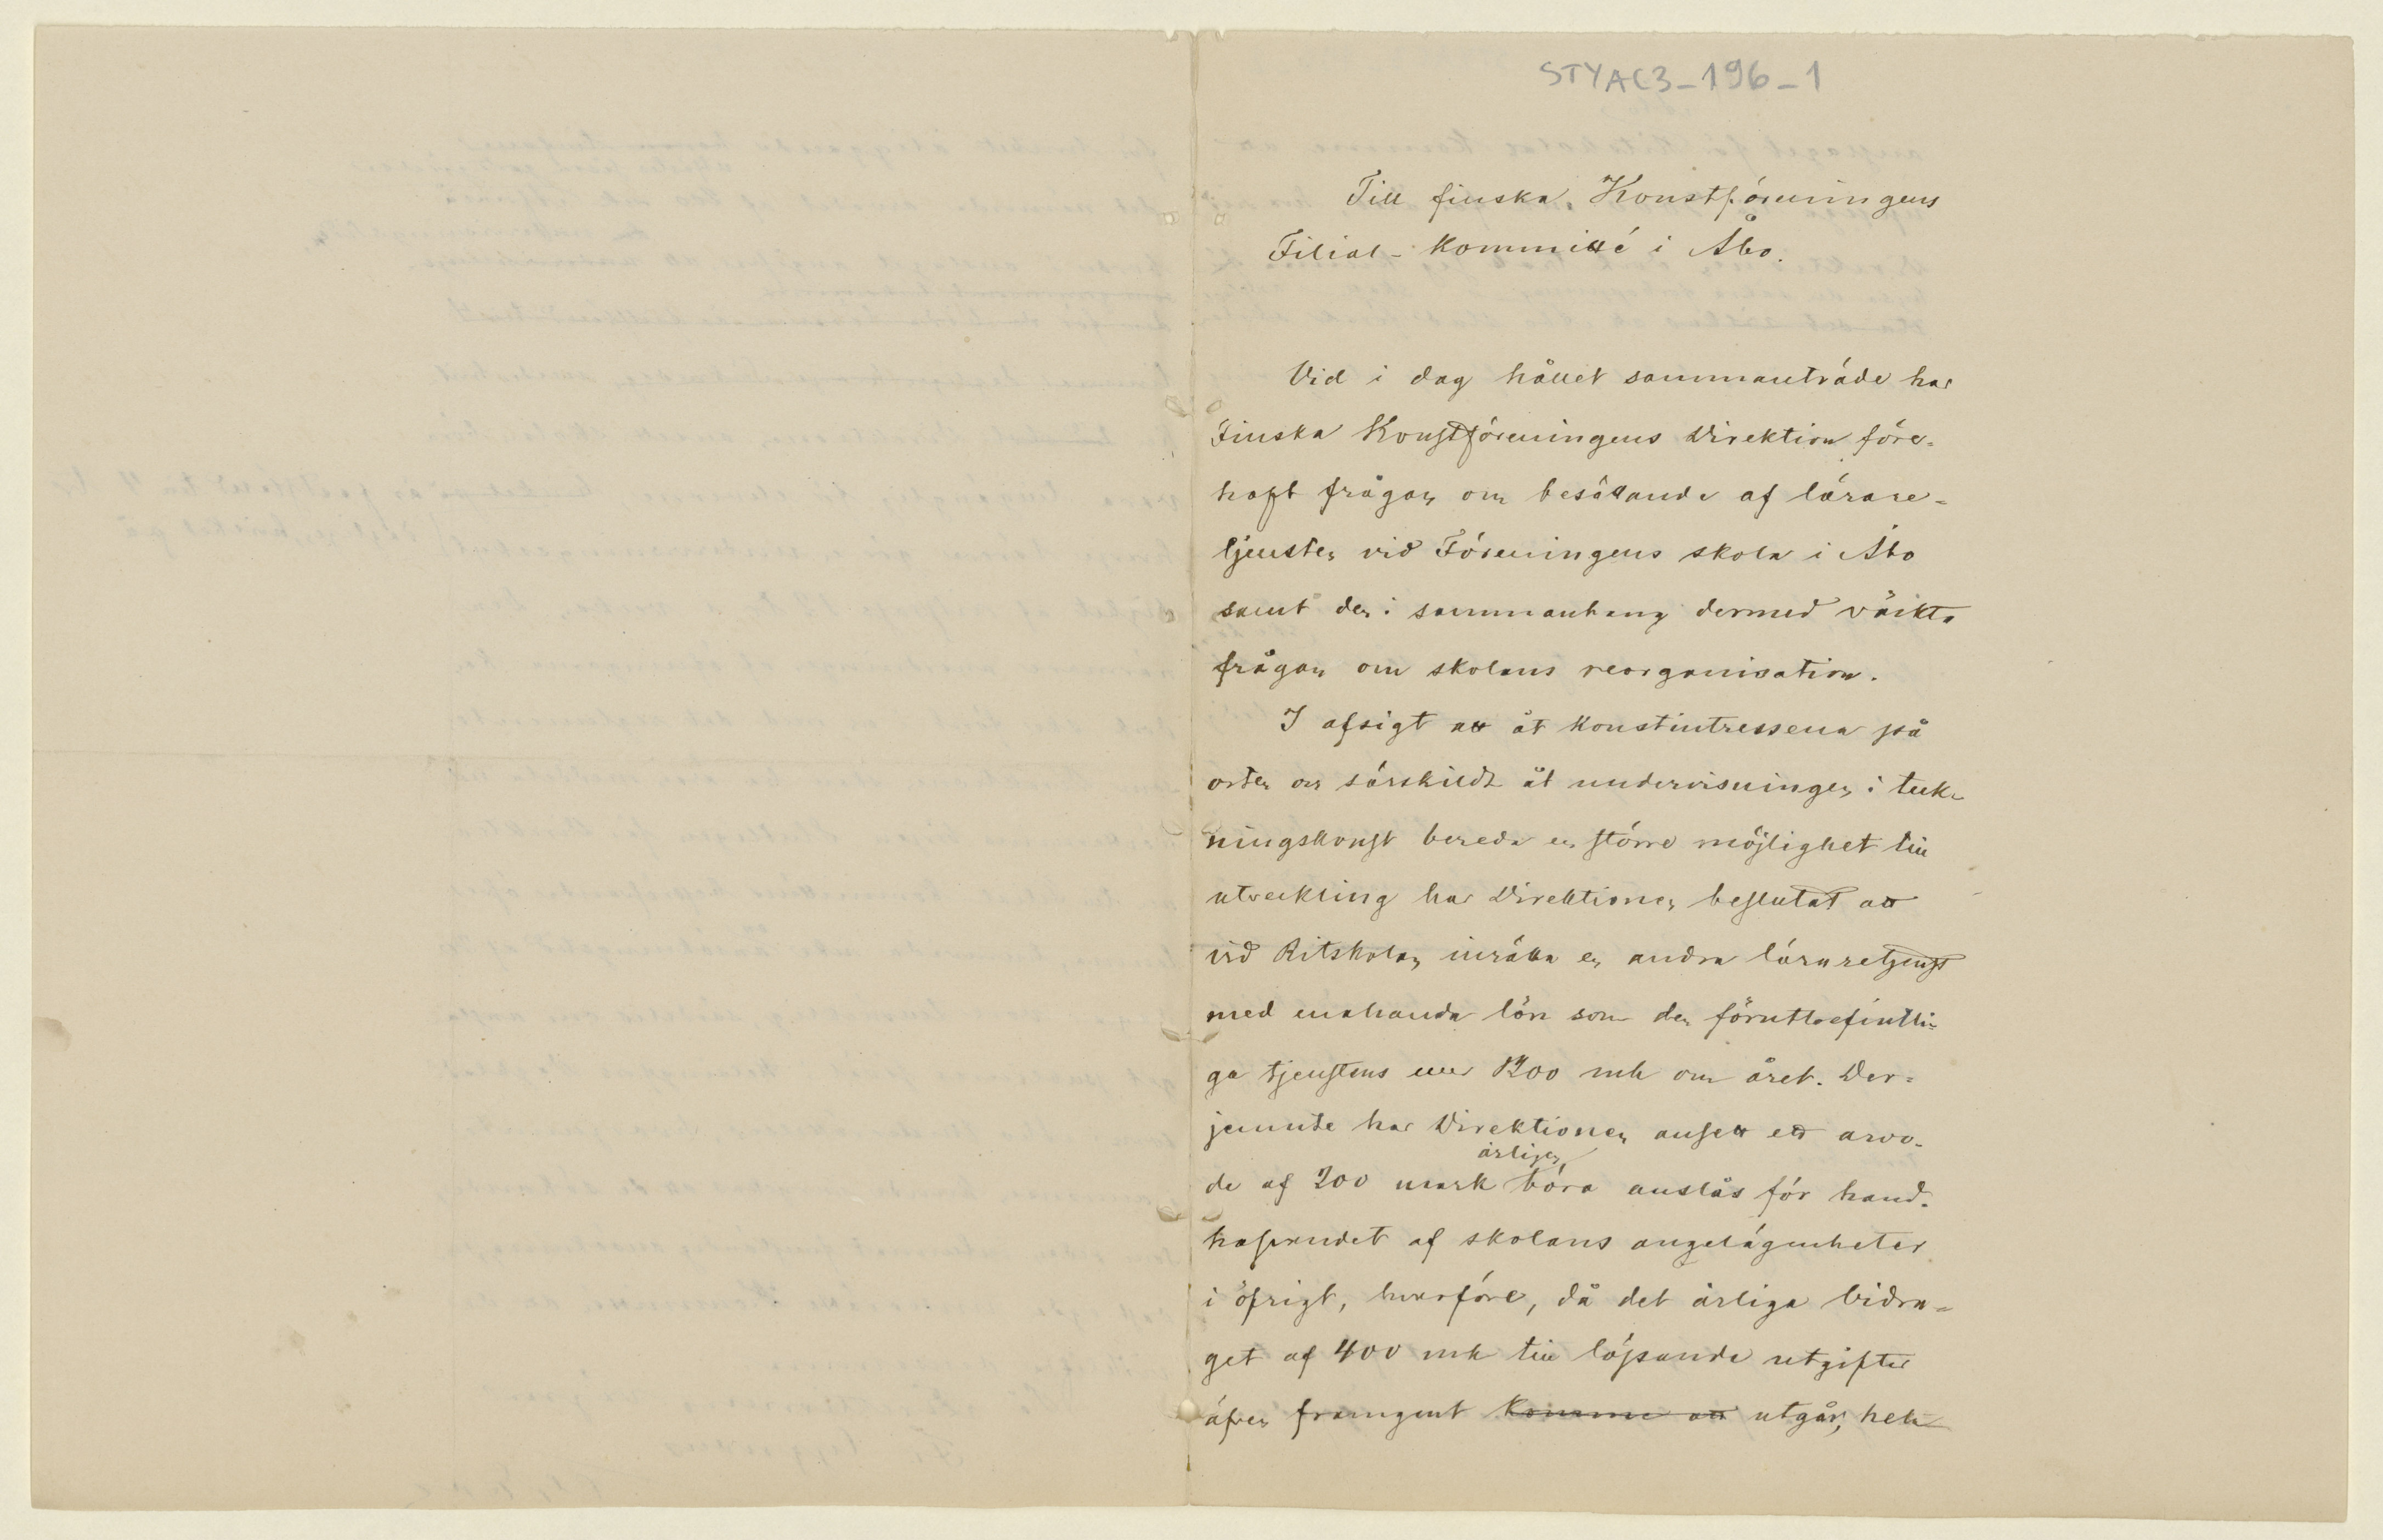 STYAC3_196_1
Till finska Konstföreningens
Filial-Kommitté i Åbo.
Vid i dag hållet sammanträde har
Finska Konstföreningens Direktion före-
haft frågan om besättande af lärare-
tjensten vid Föreningens skola i Åbo
samt den i sammanhang dermed väckta
frågan om skolans reorganisation.
I afsigt att åt konstintressena på
orten och särskildt åt undervisningen i teck-
ningskonst bereda en större möjlighet till
utveckling har Direktionen beslutat att
vid Ritskolan inrätta en andra läraretjenst
med enahanda lön som den förutbefintli-
ga tjenstens eller 1200 mk om året. Der-
jemnte har Direktionen ansett ett arvo-
årligen
de af 200 mark böra anslås för hand-
hafvandet af skolans angelägenheter
i öfrigt, hvarföre, då det årliga bidra-
get af 400 mk till löpande utgifter
äfven framgent komme att utgår, hela